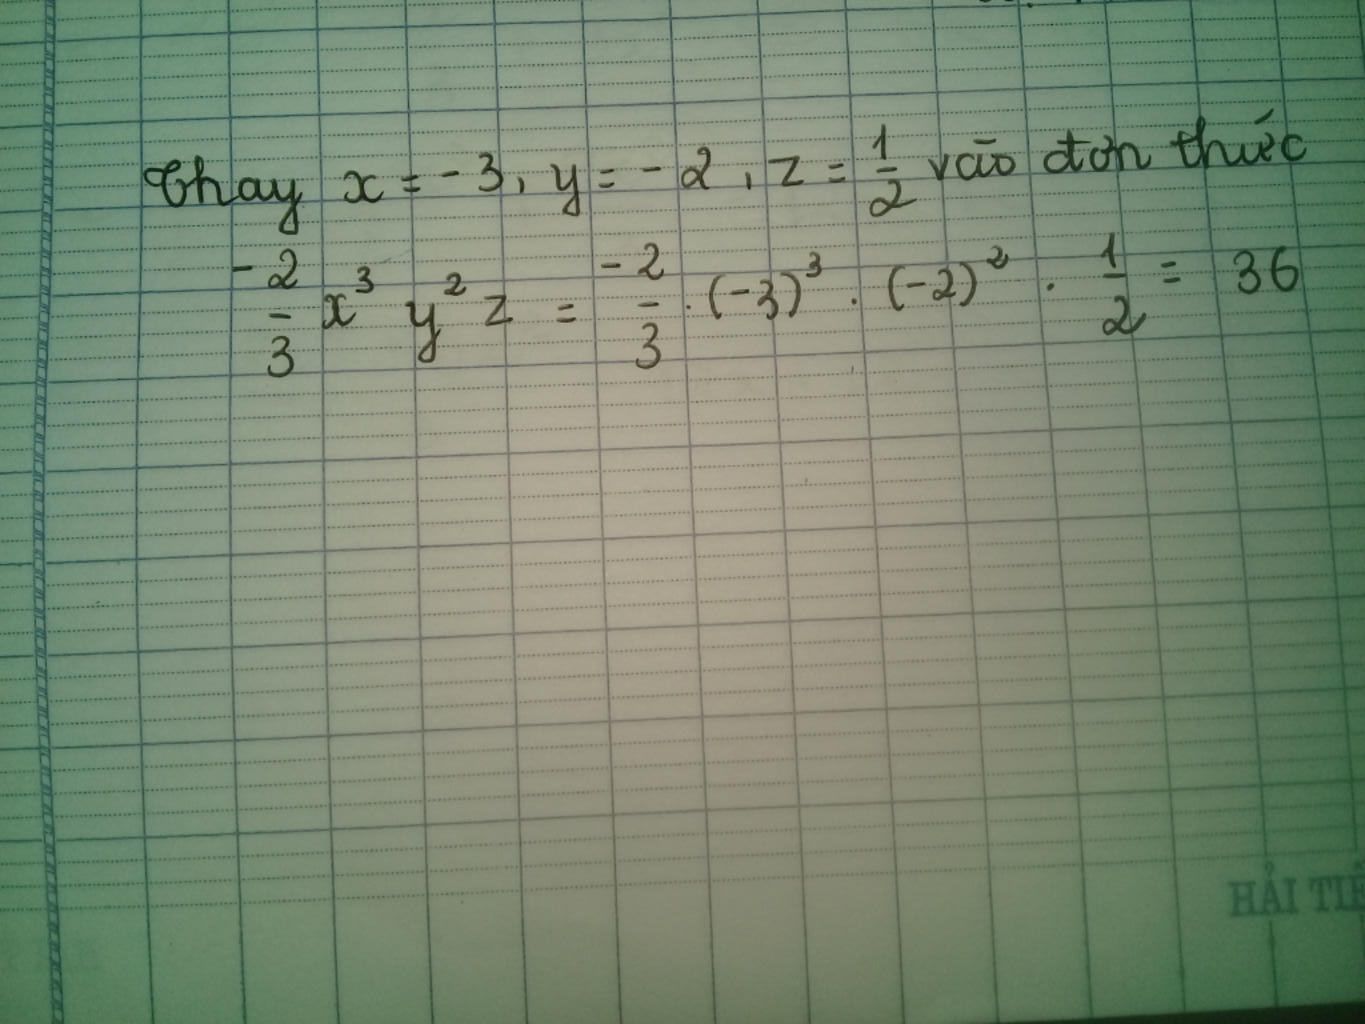 Thay x = -3, y = -2, z = 1/2 vào đơn thức
-2/3 x³ y² z = -2/3 . (-3)³ . (-2)² . 1/2 = 36
HẢI